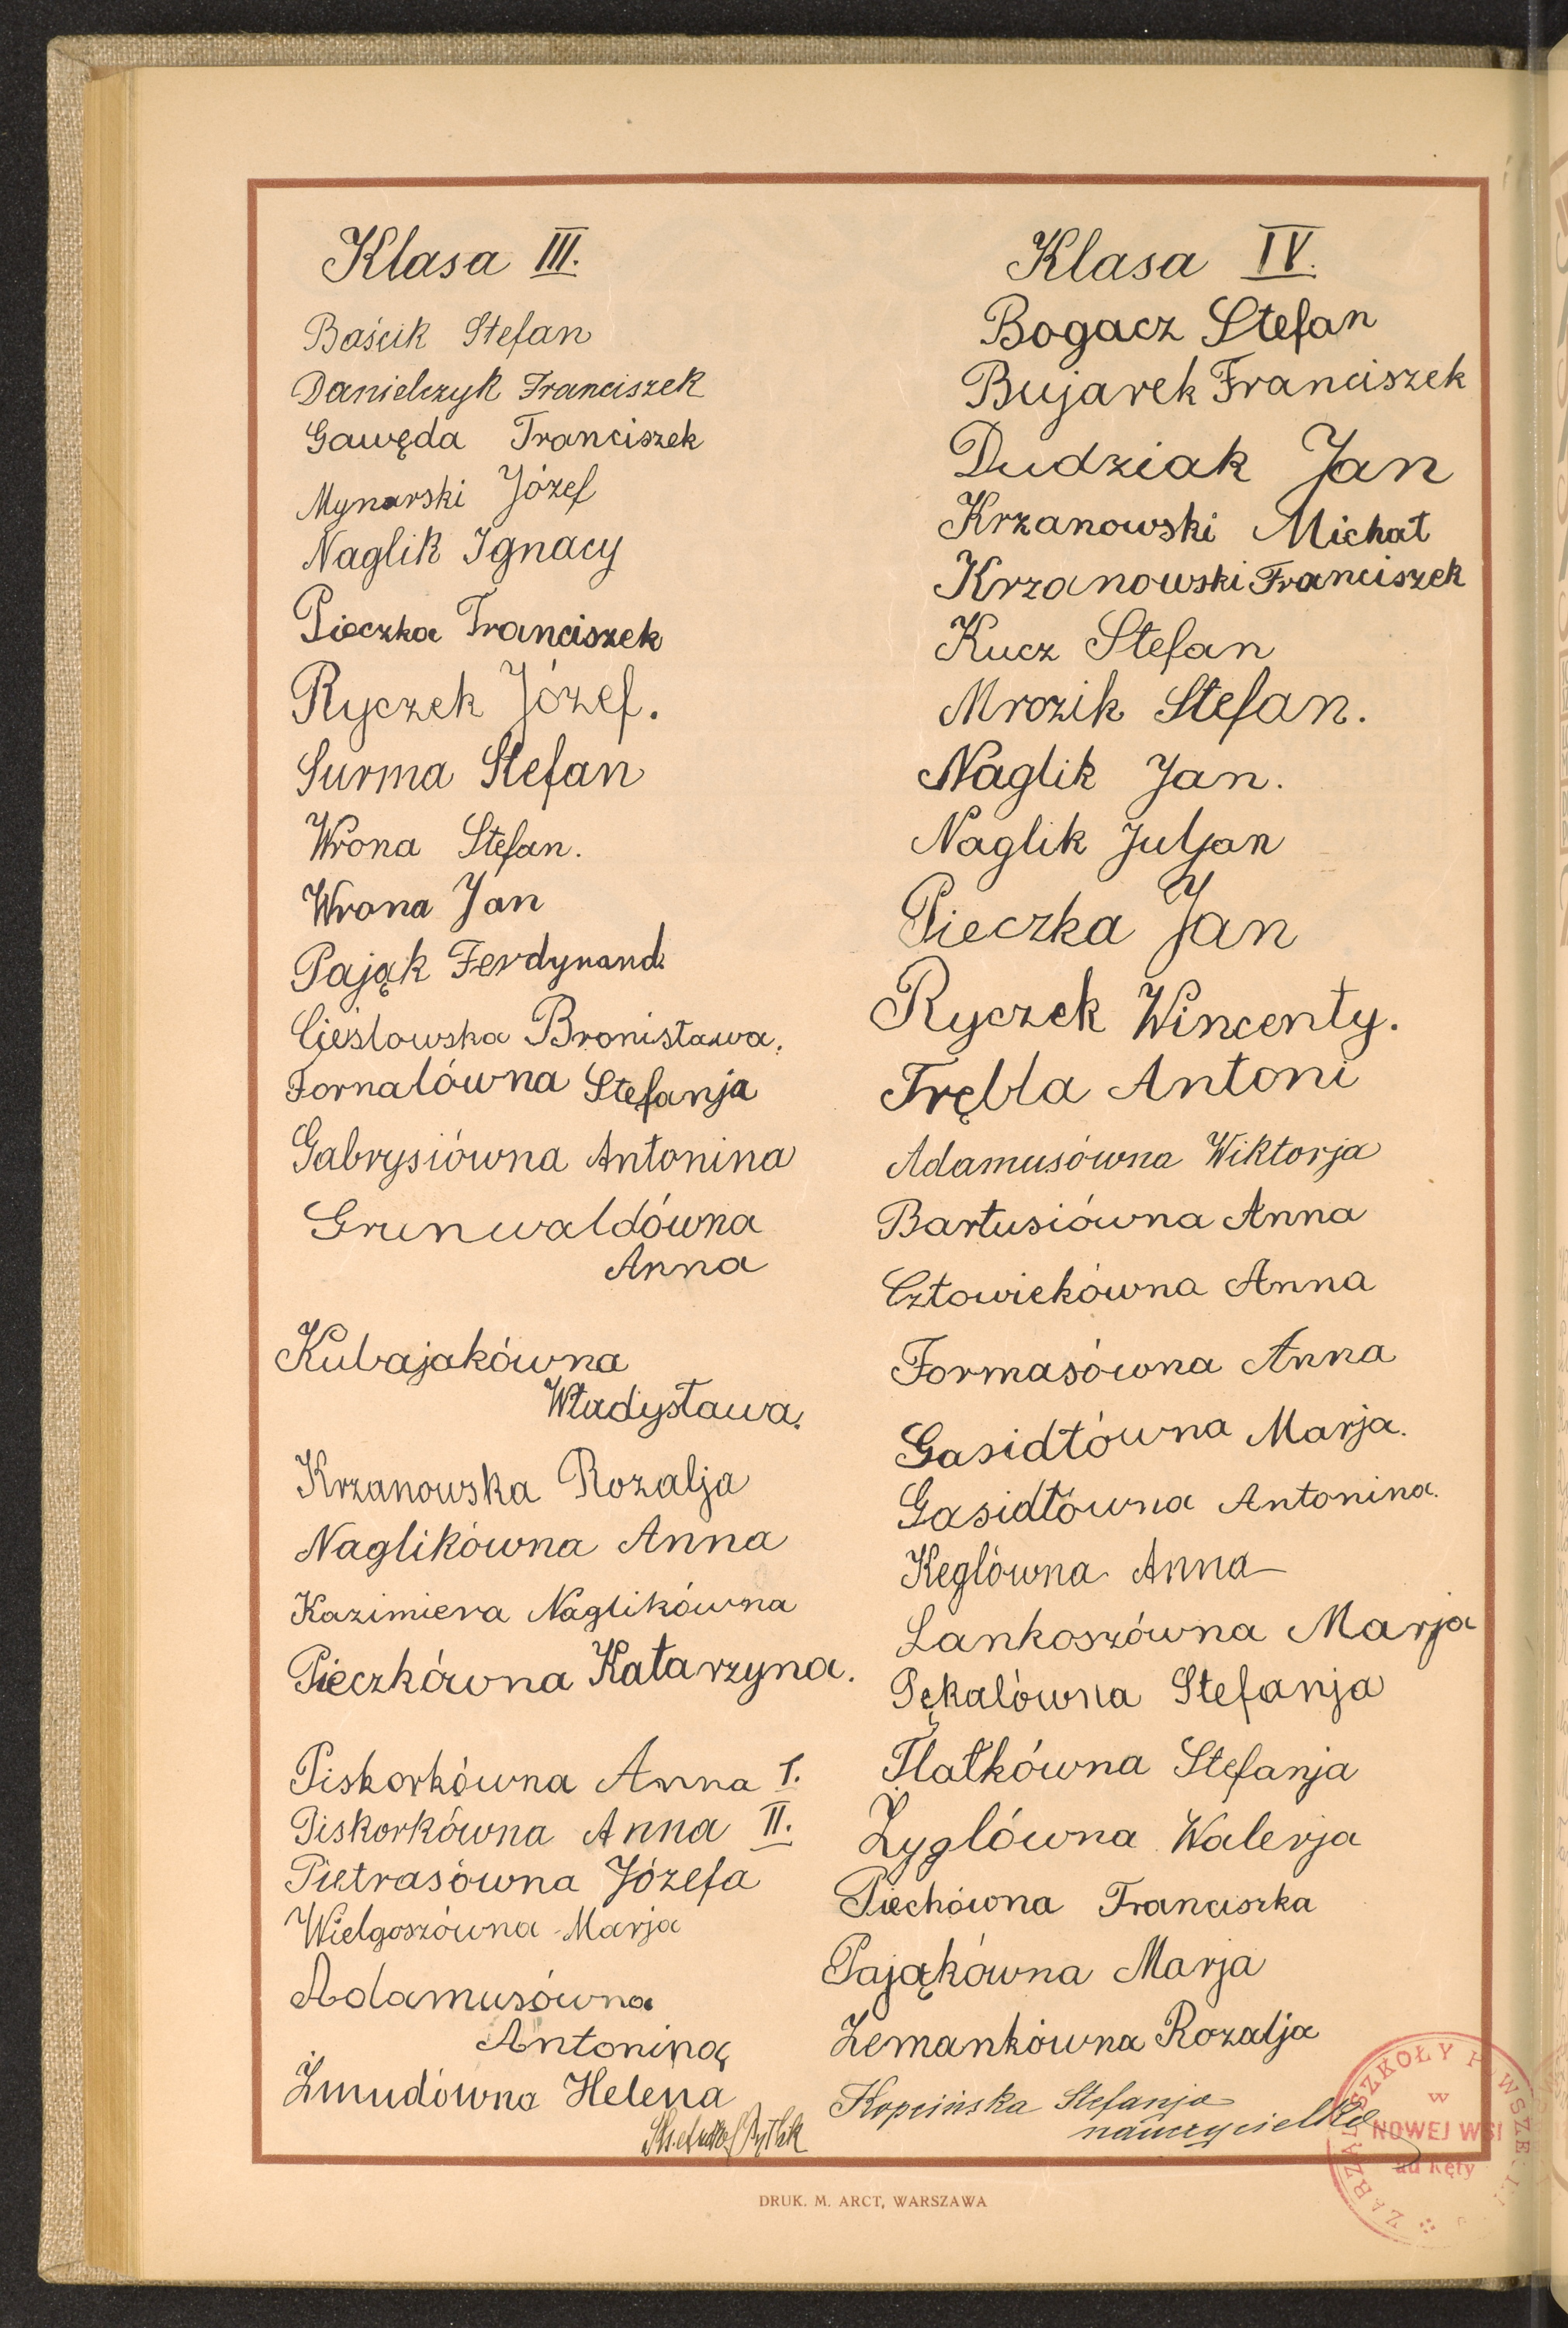 Klasa III.
Baścik Stefan
Danielczyk Franciszek
Gawęda Franciszek
Mynarski Józef
Naglik Ignacy
Pieczka Franciszek
Ryczek Józef.
Surma Stefan
Wrona Stefan.
Wrona Jan
Pająk Ferdynand.
Cieslowska Bronisława.
Fornalówna Stefanja
Gabrysiówna Antonina
Grunwaldówna
Anna
Kubajakówna
Władysława.
Krzanowska Rozalja
Naglikówna Anna
Kazimiera Naglikówna
Pieczkówna Katarzyna.
Piskorkówna Anna I.
Piskorkówna Anna II.
Pietrasówna Józefa
Wielgoszówna Marja
Adamusówna
Antonina
Żmudówna Helena
Klasa IV.
Bogacz Stefan
Bujarek Franciszek
Dudziak Jan
Krzanowski Michał
Krzanowski Franciszek
Kucz Stefan
Mrozik Stefan.
Naglik Jan.
Naglik Juljan
Pieczka Jan
Ryczek Wincenty.
Trębla Antoni
Adamusówna Wiktorja
Bartusiówna Anna
Człowiekówna Anna
Formasówna Anna
Gasidłówna Marja.
Gasidłówna Antonina.
Keglówna Anna
Lankoszówna Marja
Pękalówna Stefanja
Płatkówna Stefanja
Żyglówna Walerja
Piechówna Franciszka
Pająkówna Marja
Zemankówna Rozalja
Kopcińska Stefanja
nauczycielka
SZKOŁY
W
NOWEJ WSI
ad Kęty
DRUK. M. ARCT, WARSZAWA